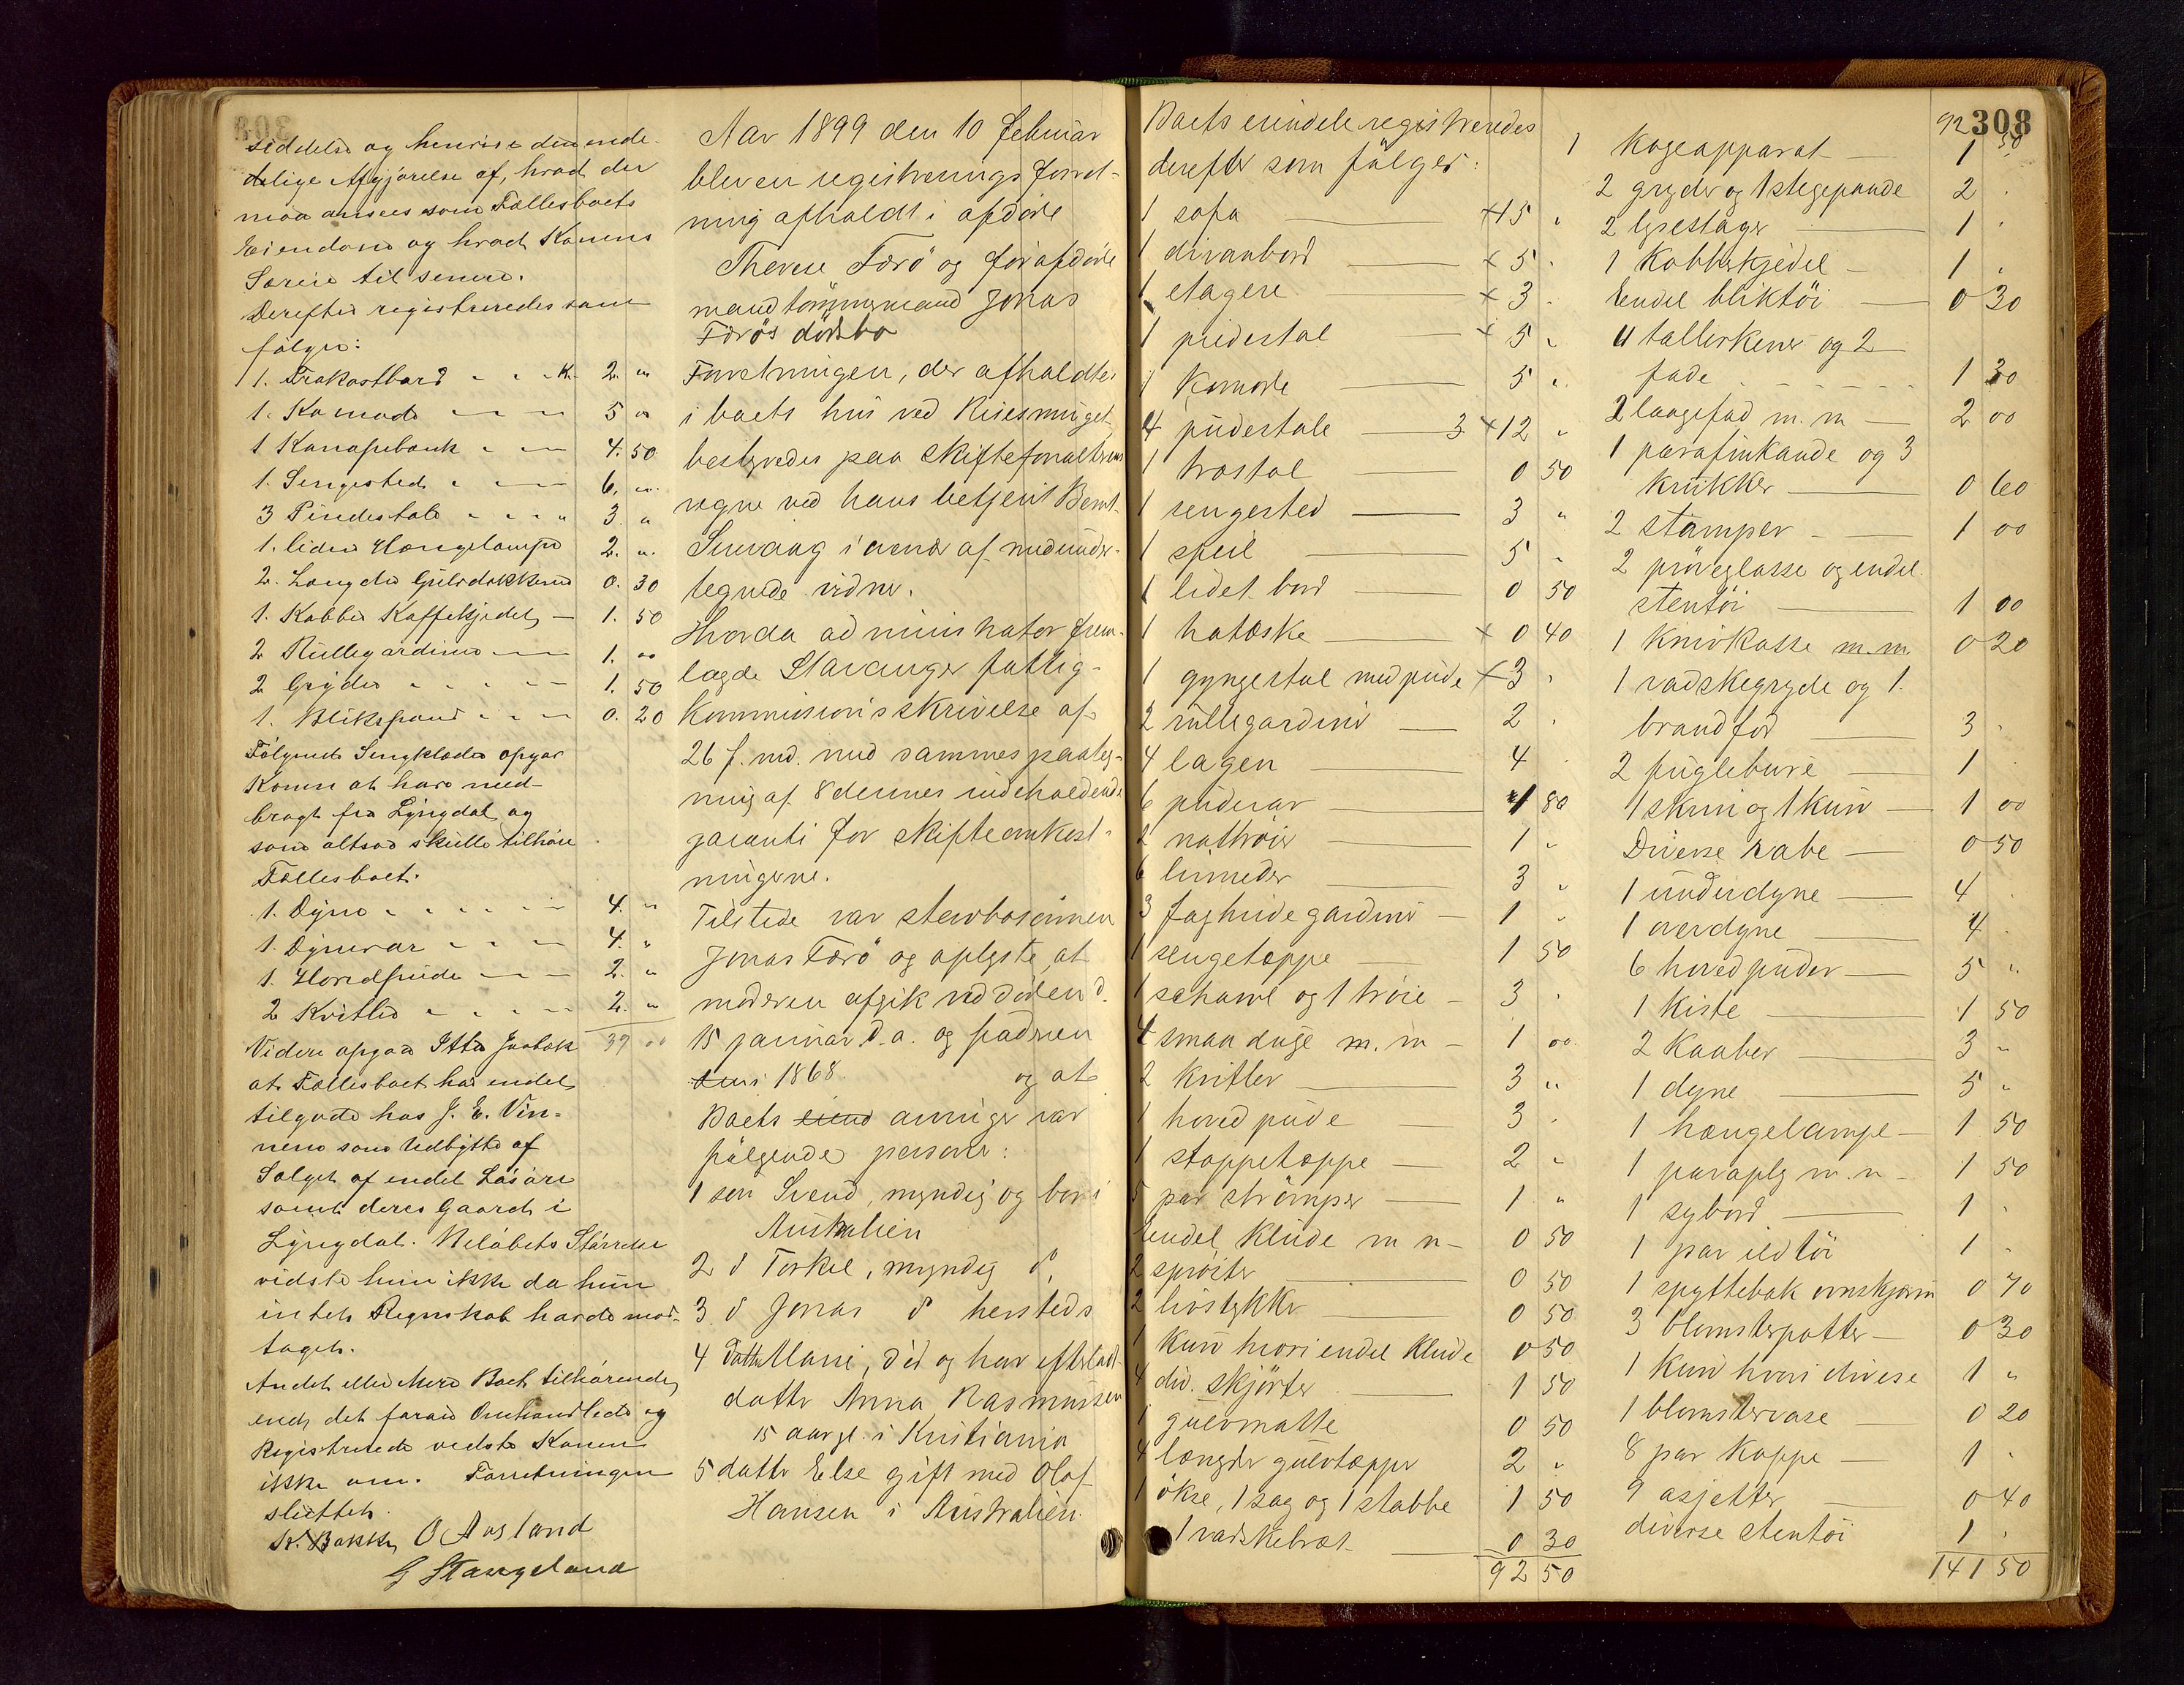 seddelse og henvise den ende-
delige Afgjörelse af, hvad der
maa ansees som Fællesboets
Eiendom og hvad Konens
Særeie til senere.
Derefter registreredes som
fölger:
1. Frokostbord " " K. 2. "
1. Komode " " 5 "
1 Kanapebænk " " 4. 50
1. Sengested " " 6. "
3 Pindestole " " " 3. "
1. liden Hængelampe 2. "
2. Længder Gulvdækken 0. 30
1. Kobber Kaffekjedel 1. 50
2 Rullegardiner 1. "
2 Gryder " " 1. 50
1. Blikspand " " 0. 20
Fölgende Sengklæder opgav
Konen at have med-
bragt fra Lyngdal og
som altsaa skulle tilhöre
Fællesboet.
1. Dyne " " 4. "
1. Dynevar " " 4. "
1. Hovedpude 2. "
2 Kvitler " " 2. "
39 00
Videre opgav
at Fællesboet har endel
tilgode hos J. E. Vin-
nem som Udbytte af
Salget af endel Lösöre
samt deres Gaard i
Lyngdal. Belöbets Störrelse
vidste hun ikke da hun
intet Regnskab havde mod-
taget.
Andet eller Mere Boet tilhörende
end det foran Omhandlede og
Registrerede vidste Konen
ikke om. Forretningen
sluttet.
K. Bakke O Aasland
G Stangeland
Aar 1899 den 10 februar
blev en registreringsforret-
ning afholdt i afdöde
Therese Færö og forafdöde
mand tömmermand Jonas
Færös dödsbo
Forretningen, der afholdtes
i boets hus ved
bestyredes paa skifteforvalterens
vegne ved hans betjent Bernt
i nærvær af medunder-
tegnede vidner.
Hvorda administrator frem-
lagde Stavanger fattig-
kommissions skrivelse af
26 f. md. med sammes paateg-
ning af 8 dennes indeholdende
garanti for skifteomkost-
ningerne.
Tilstede var stervbosönnen
Jonas Færö og oplyste, at
moderen afgik ved döden d.
15 januar d. a. og faderen
i 1868. og at
Boets arvinger var
fölgende personer:
1 sön Svend, myndig og bor i
Australien
2 d Torkel, myndig d.
3. d Jonas d hersteds
4 datter Marie, död og har efterladt
datter Anna Rasmussen
15 aar gl. i Kristiania
5 datter Else gift med Olaf
Hansen i Australien.
Boets eiendele registreredes
derefter som fölger:
1 sofa x 15 "
1 divanbord x 5 "
1 etagere x 3 "
1 pudestol x 5 "
1 Komode 5 "
4 pudestole 3 x 12 "
1 træstol 0 50
1 sengested 3 "
1 speil 5 "
1 lidet bord 0 50
1 hatæske x 0 40
1 gyngestol med pude x 3 "
2 rullegardiner 2 "
4 lagen 4 "
6 pudevar 1 80
2 nattröier 1 "
6 linneder 3 "
3 fag hvide gardiner 1 "
1 sengetæppe 1 50
1 schawl og 1 tröie 3 "
4 smaa duge m. m 1 00
2 kvitler 3 "
1 hovedpude 3 "
1 stoppetæppe 2 "
5 par strömper 1 "
Endel klude m m 0 50
2 spröiter 0 50
2 livstykker 0 50
1 kurv hvori endel klude 0 50
4 div. skjörter 1 50
1 gulvmatte 0 50
4 længder gulvtæpper 2 "
1 ökse, 1 sag og 1 stabbe 1 50
1 vadskebræt 0 30
92 50
308
92 50
1 kogeapparat 1 "
2 gryder og 1 stegepande 2 "
2 lysestager 1 "
1 Kobberkjedel 1 "
Endel bliktöi 0 30
11 tallerkener og 2
fade 1 30
2 laagefad m. m 2 00
1 parafinkande og 3
krukker 0 60
2 stamper 1 00
2 pröveglasse og endel
stentöi 1 00
1 Knivkasse m. m 0 20
1 vadskegryde og 1.
brandfod 3 "
2 fuglebure 1 "
1 skrin og 1 kurv 1 00
Diverse rabe 0 50
1 underdyne 4 "
1 overdyne 4 "
6 hovedpuder 5 "
1 kiste 1 50
2 Kaaber 3 "
1 dyne 5 "
1 hængelampe 1 50
1 paraply m. m 1 50
1 sybord 1 "
1 par ildtöi 1 "
1 spyttebak ovnskjærm 0 70
3 blomsterpotter 0 30
1 kurv hvori diverse 1 "
1 blomstervase 0 20
8 par kopper 1 "
9 asjetter 0 40
diverse stentöi 1 "
141 50